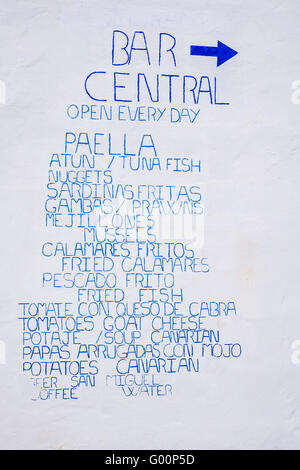 BAR
CENTRAL
OPEN EVERY DAY
PAELLA
ATUN / TUNA FISH
NUGGETS
SARDINAS FRITAS
GAMBAS / PRAWNS
MEJILLONES
MUSSEES
CALAMARES FRITOS
FRIED CALAMARES
PESCADO FRITO
FRIED FISH
TOMATE CON QUESO DE CABRA
TOMATOES GOAT CHEESE
POTAJE /SOUP CANARIAN
PAPAS ARRUGADAS CON MOJO
POTATOES CANARIAN
EER SAN MIGUEL
OFFEE WATER
alamy stock photo
G00P5D
www.alamy.com